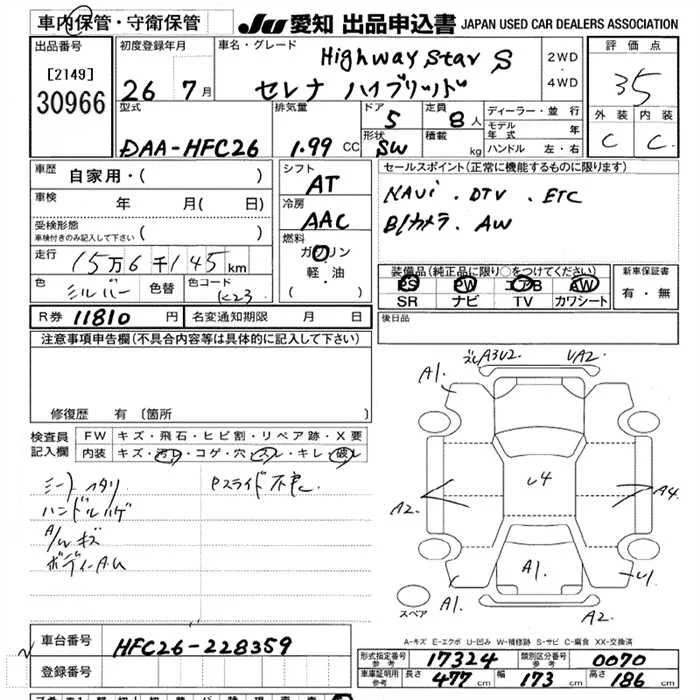 車内保管・守衛保管
JU 愛知 出品申込書 JAPAN USED CAR DEALERS ASSOCIATION
出品番号
[2149]
30966
初度登録年月
26 7月
車名・グレード
Highway Star S
セレナ ハイブリッド
2WD
・
4WD
評価点
35
外装 内装
C C
型式
DAA-HFC26
排気量
1.99 CC
ドア
5
形状
SW
定員
8人
積載
kg
ディーラー・並行
モデル年式 年
ハンドル 左・右
車歴 自家用・( )
車検 年 月( 日)
受検形態
車検付きのみ記入して下さい ( )
走行 15万6千145km
色 シルバー 色替 色コード K23
シフト
AT
冷房
AAC
燃料
ガソリン
軽・油
( )
セールスポイント(正常に機能するものに限ります)
NAVi . DTV . ETC
B/カメラ. AW
装備品(純正品に限り○をつけてください)
PS PW エアB AW
SR ナビ TV カワシート
新車保証書
有・無
R券 11810 円 名変通知期限 月 日
後日品
注意事項申告欄(不具合内容等は具体的に記入して下さい)
修復歴 有 〔箇所 〕
検査員
記入欄
FW キズ・飛石・ヒビ割・リペア跡・X要
内装 キズ・汚れ・コゲ・穴・スレ・キレ・破レ
シートヘタリ Pスライド不良
ハンドルハゲ
A/Wキズ
ボディーA.U
A3U2 UA2
A1.
A2 A4
A1.
U1
A1
A2.
スペア
A-キズ E-エクボ U-凹み W-補修跡 S-サビ C-腐食 XX-交換済
車台番号 HFC26-228359
登録番号
形式指定番号 参考 17324 類別区分番号 参考 0070
車庫証明用 参考 長さ 477cm 幅 173cm 高さ 186cm